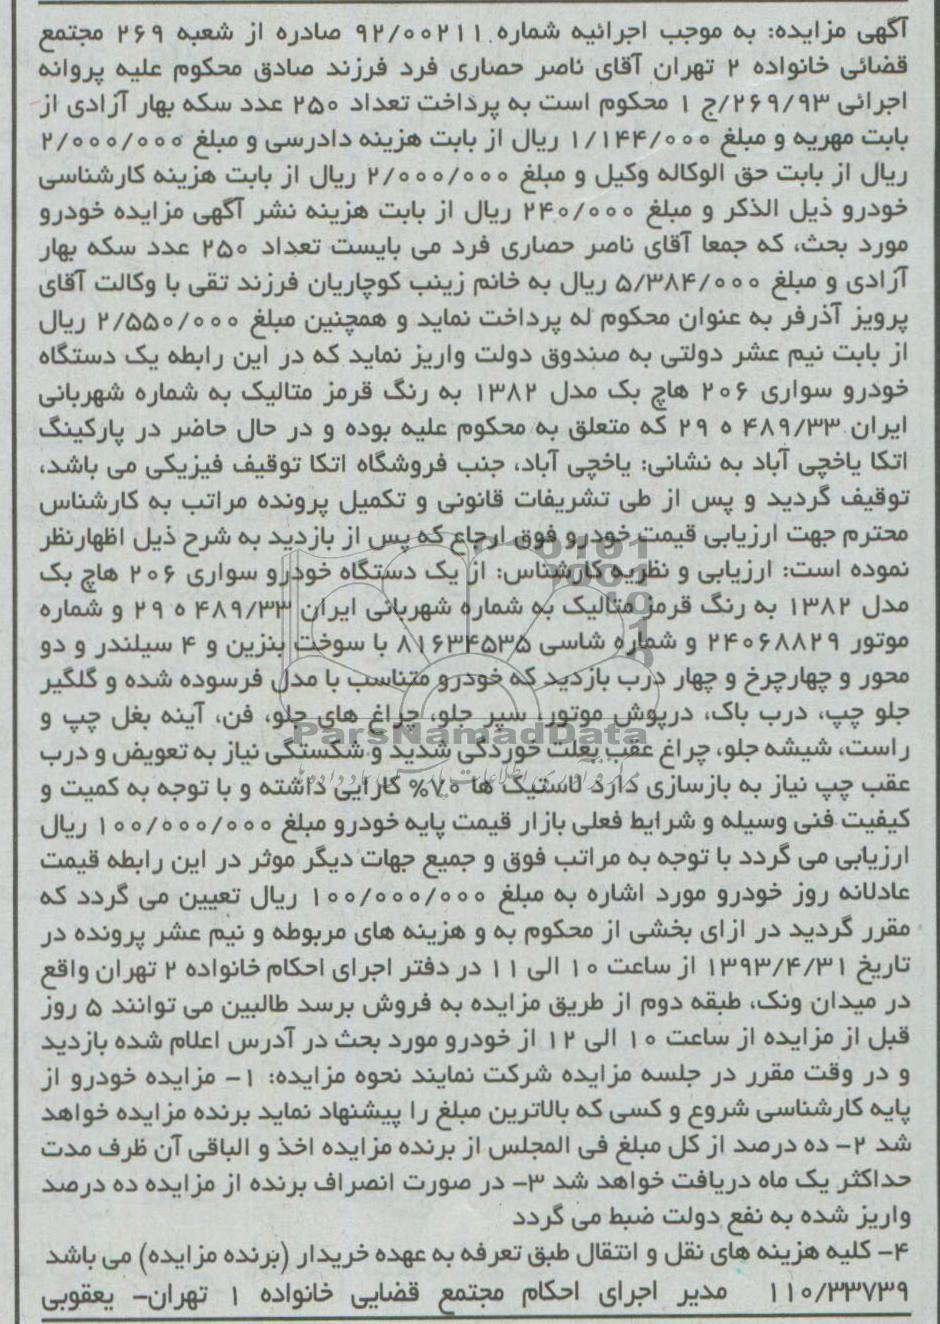 آگهی مزایده: به موجب اجرائیه شماره ۹۲/۰۰۲۱۱ صادره از شعبه ۲۶۹ مجتمع
قضائی خانواده ۲ تهران آقای ناصر حصاری فرد فرزند صادق محکوم علیه پروانه
اجرائی ۲۶۹/۹۳/ج ۱ محکوم است به پرداخت تعداد ۲۵۰ عدد سکه بهار آزادی از
بابت مهریه و مبلغ ۱/۱۴۴/۰۰۰ ریال از بابت هزینه دادرسی و مبلغ ۲/۰۰۰/۰۰۰
ریال از بابت حق الوکاله وکیل و مبلغ ۲/۰۰۰/۰۰۰ ریال از بابت هزینه کارشناسی
خودرو ذیل الذکر و مبلغ ۲۴۰/۰۰۰ ریال از بابت هزینه نشر آگهی مزایده خودرو
مورد بحث، که جمعا آقای ناصر حصاری فرد می بایست تعداد ۲۵۰ عدد سکه بهار
آزادی و مبلغ ۵/۳۸۴/۰۰۰ ریال به خانم زینب کوچاریان فرزند تقی با وکالت آقای
پرویز آذرفر به عنوان محکوم له پرداخت نماید و همچنین مبلغ ۲/۵۵۰/۰۰۰ ریال
از بابت نیم عشر دولتی به صندوق دولت واریز نماید که در این رابطه یک دستگاه
خودرو سواری ۲۰۶ هاچ بک مدل ۱۳۸۲ به رنگ قرمز متالیک به شماره شهربانی
ایران ۴۸۹/۳۳ ه ۲۹ که متعلق به محکوم علیه بوده و در حال حاضر در پارکینگ
اتکا یاخچی آباد به نشانی: یاخچی آباد، جنب فروشگاه اتکا توقیف فیزیکی می باشد،
توقیف گردید و پس از طی تشریفات قانونی و تکمیل پرونده مراتب به کارشناس
محترم جهت ارزیابی قیمت خودرو فوق ارجاع که پس از بازدید به شرح ذیل اظهارنظر
نموده است: ارزیابی و نظریه کارشناس: از یک دستگاه خودرو سواری ۲۰۶ هاچ بک
مدل ۱۳۸۲ به رنگ قرمز متالیک به شماره شهربانی ایران ۴۸۹/۳۳ ه ۲۹ و شماره
موتور ۲۴۰۶۸۸۲۹ و شماره شاسی ۸۱۶۳۴۵۳۵ با سوخت بنزین و ۴ سیلندر و دو
محور و چهارچرخ و چهار درب بازدید که خودرو متناسب با مدل فرسوده شده و گلگیر
جلو چپ، درب باک، درپوش موتور، سپر جلو، چراغ های جلو، فن، آینه بغل چپ و
راست، شیشه جلو، چراغ عقب بعلت خوردگی شدید و شکستگی نیاز به تعویض و درب
عقب چپ نیاز به بازسازی دارد لاستیک ها ۷۰% کارایی داشته و با توجه به کمیت و
کیفیت فنی وسیله و شرایط فعلی بازار قیمت پایه خودرو مبلغ ۱۰۰/۰۰۰/۰۰۰ ریال
ارزیابی می گردد با توجه به مراتب فوق و جمیع جهات دیگر موثر در این رابطه قیمت
عادلانه روز خودرو مورد اشاره به مبلغ ۱۰۰/۰۰۰/۰۰۰ ریال تعیین می گردد که
مقرر گردید در ازای بخشی از محکوم به و هزینه های مربوطه و نیم عشر پرونده در
تاریخ ۱۳۹۳/۴/۳۱ از ساعت ۱۰ الی ۱۱ در دفتر اجرای احکام خانواده ۲ تهران واقع
در میدان ونک، طبقه دوم از طریق مزایده به فروش برسد طالبین می توانند ۵ روز
قبل از مزایده از ساعت ۱۰ الی ۱۲ از خودرو مورد بحث در آدرس اعلام شده بازدید
و در وقت مقرر در جلسه مزایده شرکت نمایند نحوه مزایده: ۱- مزایده خودرو از
پایه کارشناسی شروع و کسی که بالاترین مبلغ را پیشنهاد نماید برنده مزایده خواهد
شد ۲- ده درصد از کل مبلغ فی المجلس از برنده مزایده اخذ و الباقی آن ظرف مدت
حداکثر یک ماه دریافت خواهد شد ۳- در صورت انصراف برنده از مزایده ده درصد
واریز شده به نفع دولت ضبط می گردد
۴- کلیه هزینه های نقل و انتقال طبق تعرفه به عهده خریدار (برنده مزایده) می باشد
۱۱۰/۳۳۷۳۹ مدیر اجرای احکام مجتمع قضایی خانواده ۱ تهران- یعقوبی
ParsNamadData